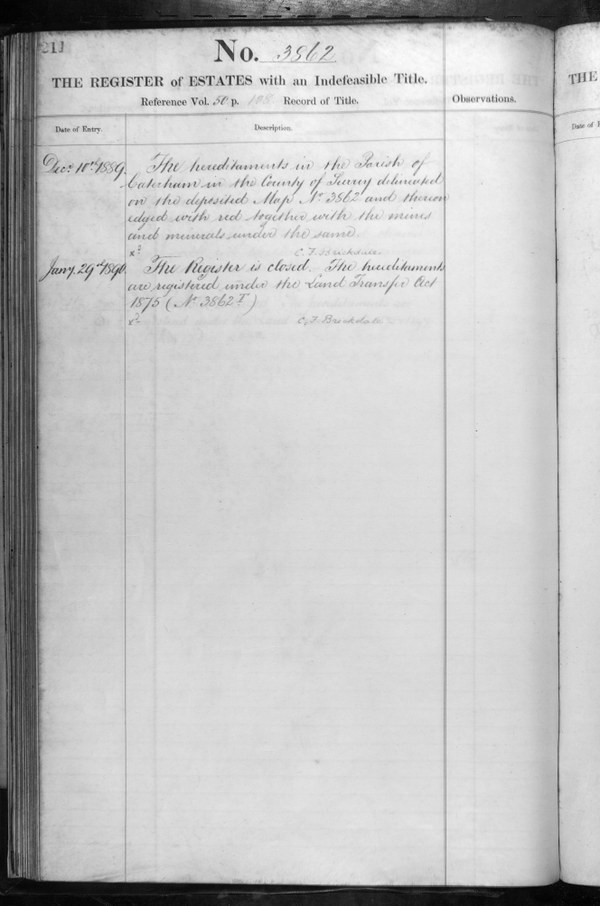 211
No. 3862
THE REGISTER of ESTATES with an Indefeasible Title.
Reference Vol. 50 p. 108 Record of Title.
Observations.
Date of Entry
Description.
Decr. 10th 1889. The hereditaments in the Parish of
Caterham in the County of Surrey delineated
on the deposited Map No. 3862 and thereon
edged with red together with the mines
and minerals under the same.
C. F. Brickdale
Jany. 29th 1890. The Register is closed. The hereditaments
are registered under the Land Transfer Act
1875 (No. 3862 T)
C. F. Brickdale
THE
Date of E